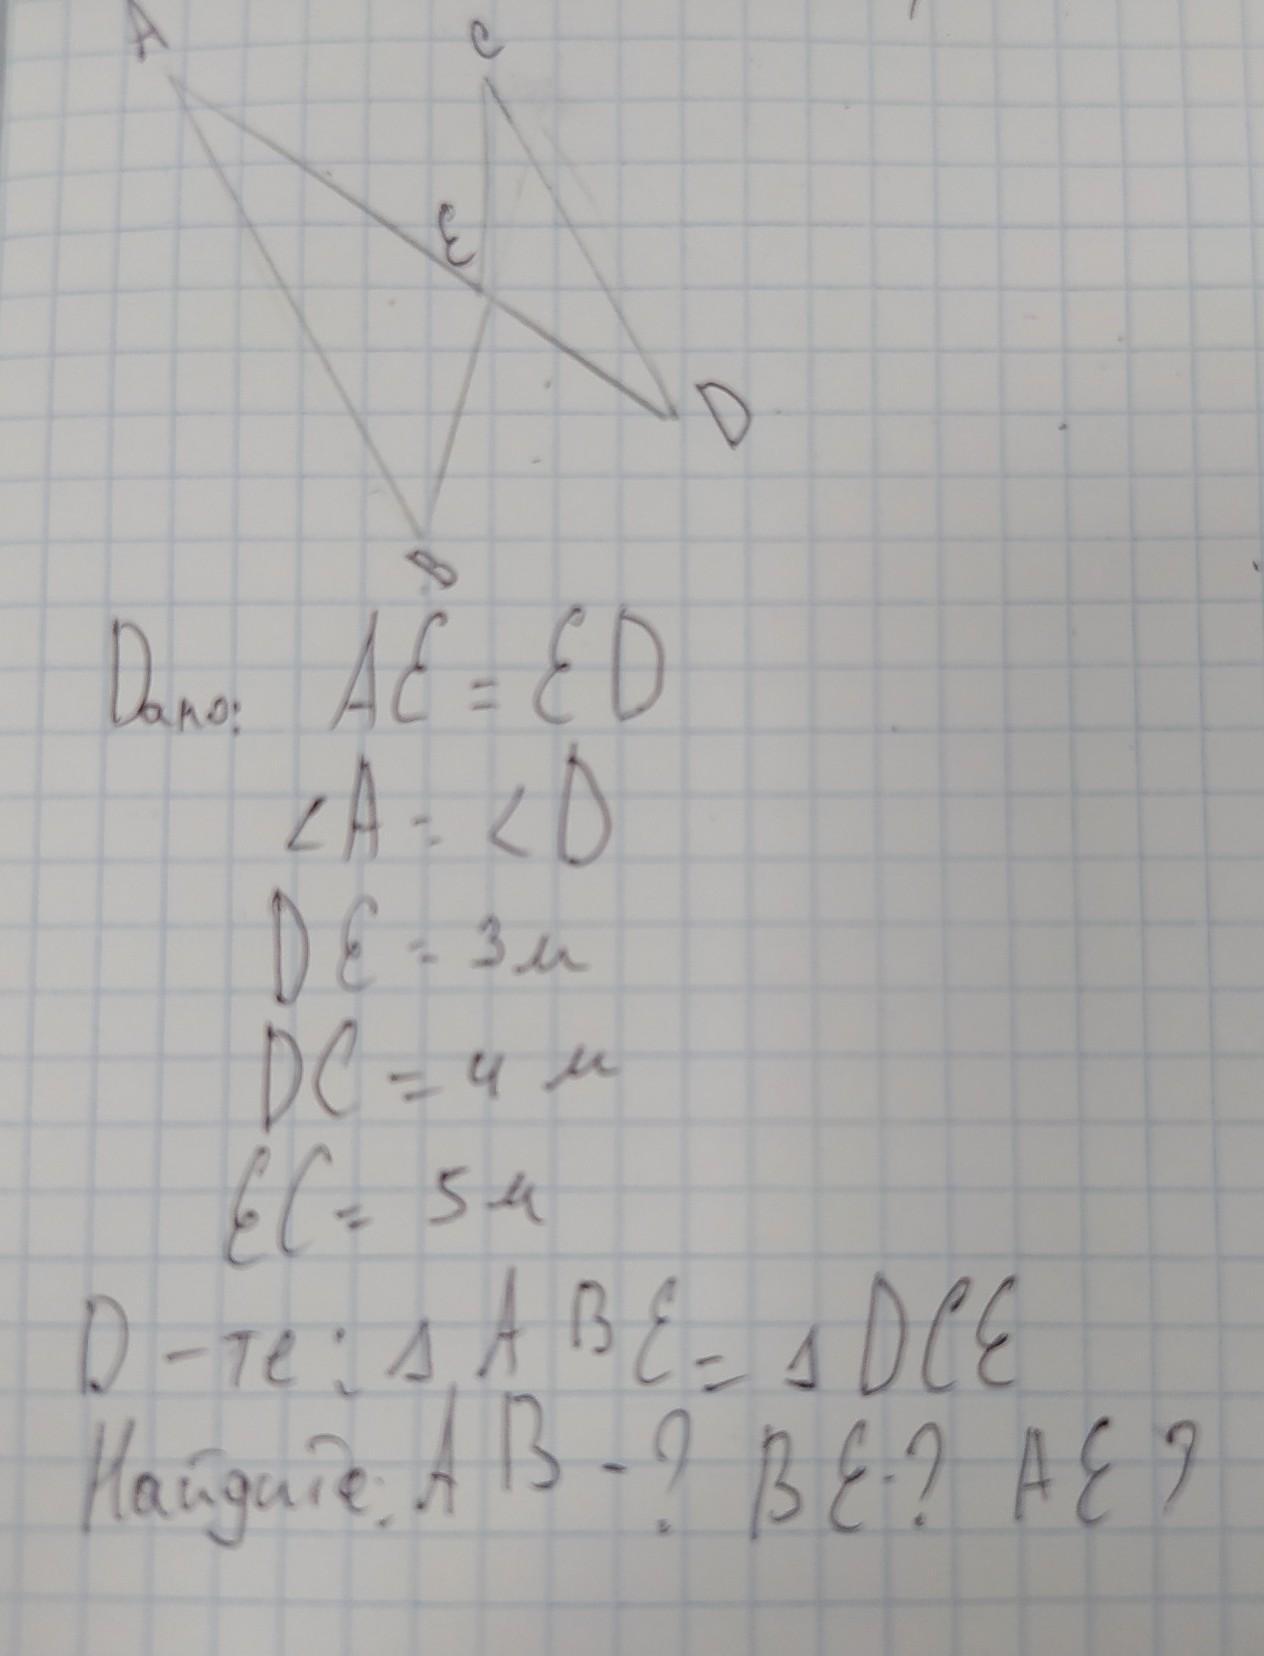 A
C
E
D
B
Дано: AE = ED
<A = <D
DE = 3м
DC = 4 м
EC = 5м
D-те: Δ ABE = Δ DCE
Найдите: AB - ? BE-? AE?